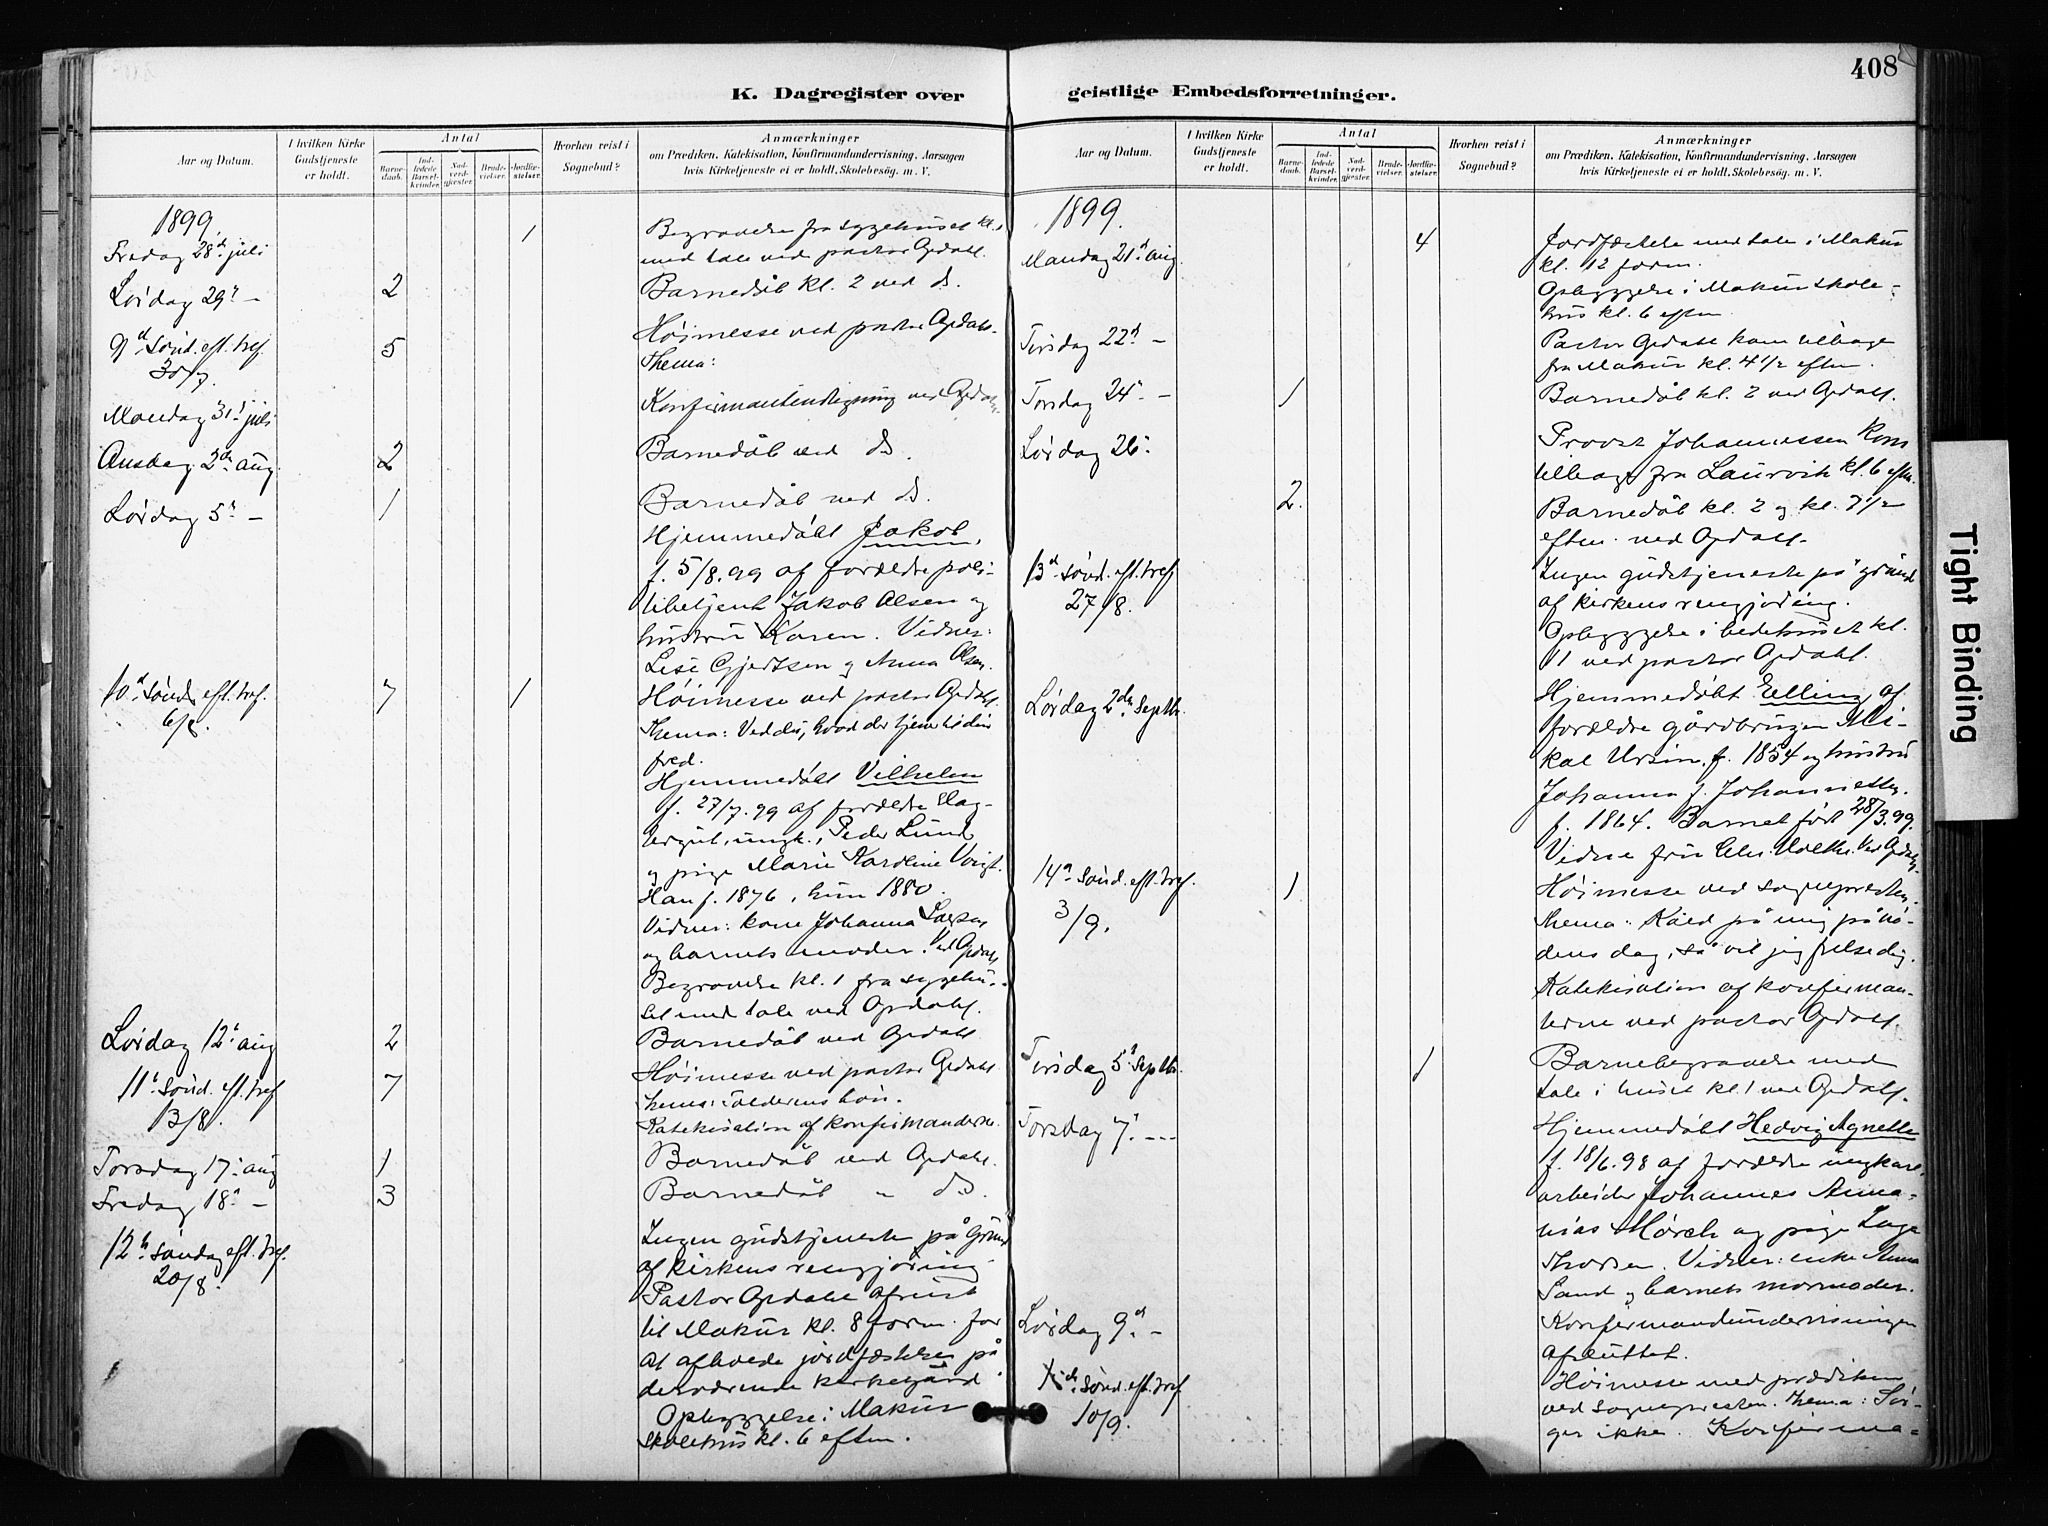 408
K. Dagregister over
geistlige Embedsforretninger.
Aar og Datum.
I hvilken Kirke Gudstjeneste er holdt.
Antal
Barnedaab.
Indledede Barselkvinder.
Nadverdgjester.
Brudevielser.
Jordfæstelser.
Hvorhen reist i Sognebud?
Anmærkninger
om Prædiken, Katekisation, Konfirmandundervisning, Aarsagen
hvis Kirketjeneste ei er holdt, Skolebesøg, m. V.
1899.
Fredag 28de juli 1 Begravelse fra sygehuset kl. 1
med tale ved pastor Opdahl.
Lørdag 29de — 2 Barnedåb kl. 2 ved ds.
9de sønd. eft. tref. 5 Høimesse ved pastor Opdahl.
30/7. Thema:
Mandag 31te juli Konfirmantindtegning ved Opdahl.
Onsdag 2den aug. 2 Barnedåb ved ds.
Lørdag 5te — 1 Barnedåb ved ds.
Hjemmedøbt Jakob,
f. 5/8.99 af forældre poli-
tibetjent Jakob Olsen og
hustru Karen. Vidner:
Lise Gjertsen og Anna Olsen.
10de sønd. eft. tref. 7 1 Høimesse ved pastor Opdahl.
6/8. Thema: Vidste du, hvad der tjener til din
fred.
Hjemmedøbt Vilhelm
f. 27/7.99 af forældre
ungk. Peder Lund
og pige Marie Karoline Voigt.
Han f. 1876, hun 1880.
Vidner: kone Johanna Larsen
og barnets moder. Ved Opdahl.
Begravelse kl. 1 fra sygehu-
set med tale ved Opdahl.
Lørdag 12te aug 2 Barnedåb ved Opdahl
11te sønd. eft. tref 7 Høimesse ved pastor Opdahl
13/8. Thema: Tolderens bøn.
Katekisation af konfirmanderne.
Torsdag 17de aug 1 Barnedåb ved Opdahl.
Fredag 18de — 3 Barnedåb " ds.
12te søndag eft. tref. Ingen gudstjeneste på grund
20/8. af kirkens rengjøring.
Pastor Opdahl afreist
til Makur kl. 8 form. for
at afholde jordfæstelse på
derværende kirkegård.
Opbyggelse i Makur
skolehus kl. 6 eftm.
1899.
Mandag 21de aug. 4 Jordfæstelse med tale i Makur
kl. 12 form.
Opbyggelse i Makur skole-
hus kl. 6 eftm.
Tirsdag 22de — Pastor Opdahl kom tilbage
fra Makur kl. 4 1/2 eftm.
Torsdag 24de — 1 Barnedåb kl. 2 ved Opdahl.
Lørdag 26de Provst Johannessen kom
tilbage fra Laurvik kl. 6 eftm.
2. Barnedåb kl. 2 og kl. 7 1/2
eftm. ved Opdahl.
13de sønd. eft. tref. Ingen gudstjeneste på grund
27/8. af kirkens rengjøring.
Opbyggelse i bedehuset kl.
11 ved pastor Opdahl.
Lørdag 2den septbr. Hjemmedøbt Elling af
forældre gårdbruger Mi-
kal Ursin, f. 1854 og hustru
Johanna f. Johannessen.
f. 1864. Barnet født 28/3.99.
Vidne fru Holth. Ved Opdahl.
14de sønd. eft. tref. 1 Høimesse ved sognepresten.
3/9. Thema: Kald på mig på nø-
dens dag, så vil jeg frelse dig.
Katekisation af konfirman-
terne ved pastor Opdahl.
Tirsdag 5te septbr. 1 Barnebegravelse med
tale i huset kl. 1 ved Opdahl.
Torsdag 7de — Hjemmedøbt Hedvig Agnette
f. 18/6.98 af forældre ungkarl,
arbeider Johannes Anna-
nias Mørch og pige Inga
Thorsen. Vidner: enke Anna
Sand og barnets mormoder.
Lørdag 9de — Konfirmandundervisningen
afsluttet.
sønd. eft. tref Høimesse med prædiken
10/9. ved sognepresten. Thema: Sør-
ger ikke. Konfirma-
Tight Binding